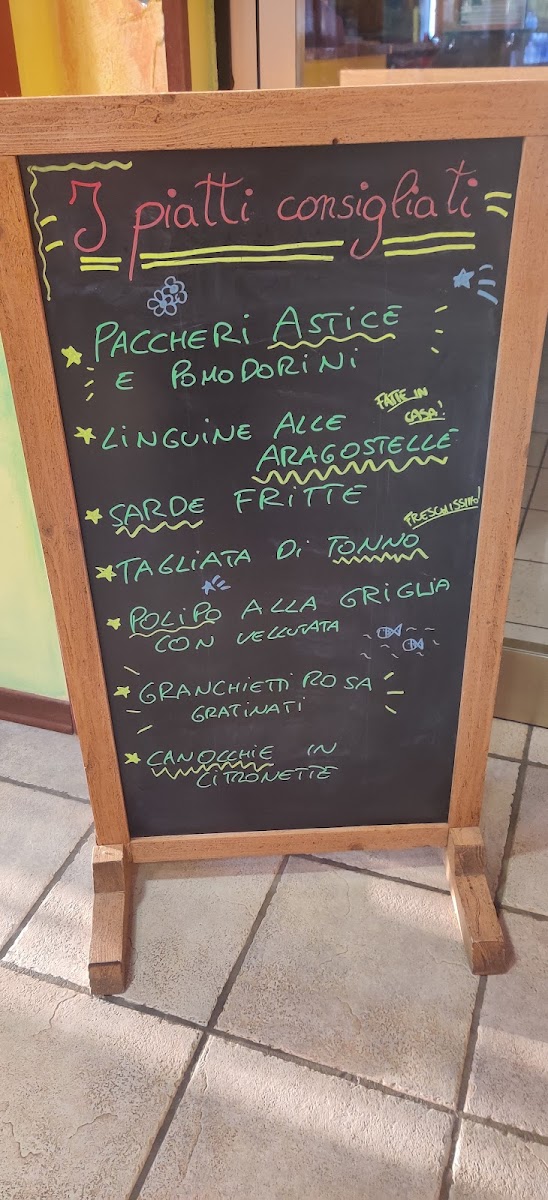 I piatti consigliati
PACCHERI ASTICE
E POMODORINI
LINGUINE ALLE
ARAGOSTELLE
FATTE IN
CASA!
SARDE FRITTE
TAGLIATA DI TONNO
FRESCHISSIMO!
POLIPO ALLA GRIGLIA
CON VELLUTATA
GRANCHIETTI ROSA
GRATINATI
CANOCCHIE IN
CITRONETTE